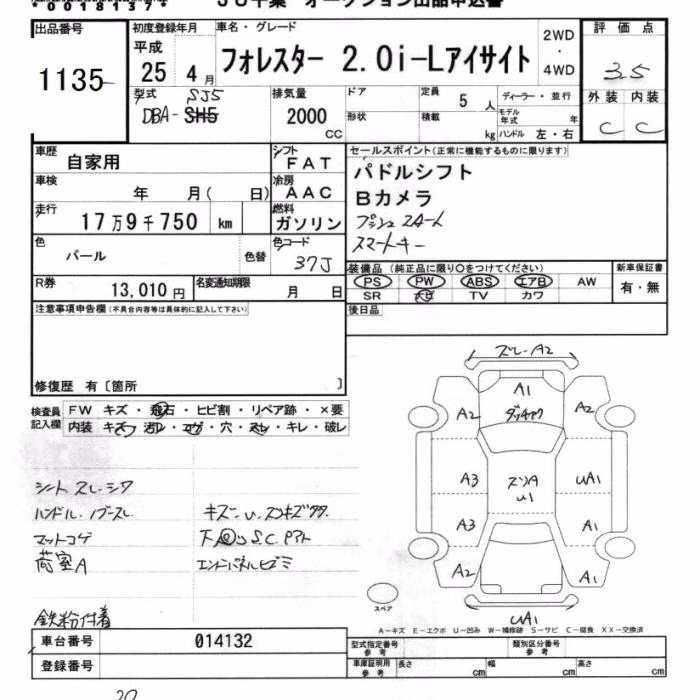 *00181374*
JU千葉 オークション出品申込書
出品番号
1135
初度登録年月
平成
25 4月
車名・グレード
フォレスター 2.0i-Lアイサイト
2WD
・
4WD
評価点
3.5
外装 内装
C C
型式
SJ5
DBA-SH5
排気量
2000
CC
ドア
形状
定員
5 人
積載
kg
ディーラー・並行
モデル年式 年
ハンドル 左・右
車歴
自家用
シフト
FAT
車検
年 月( 日)
冷房
AAC
走行
17万9千750 km
燃料
ガソリン
色
パール
色替
色コード
37J
R券
13,010円
名変通知期限
月 日
セールスポイント(正常に機能するものに限ります)
パドルシフト
Bカメラ
プッシュスタート
スマートキー
装備品(純正品に限り○をつけてください)
PS PW ABS エアB AW
SR ナビ TV カワ
新車保証書
有・無
後日品
注意事項申告欄(不具合内容等は具体的に記入して下さい)
修復歴 有〔箇所 〕
検査員
記入欄
FW キズ・飛石・ヒビ割・リペア跡・×要
内装 キズ・汚れ・コゲ・穴・スレ・キレ・破レ
シートスレ・シワ
ハンドル・ノブスレ
マットコゲ
荷室A
鉄粉付着
キズ・U・スリキズタタ
エンドパネルヒズミ
ズレ・A2
A1
A2
A2
A3
スリA
U1
UA1
A3
A1
A2
A1
UA1
スペア
A-キズ E-エクボ U-凹み W-補修跡 S-サビ C-腐食 XX-交換済
車台番号
014132
登録番号
型式指定番号
参考
類別区分番号
参考
車庫証明用
参考
長さ cm
幅 cm
高さ cm